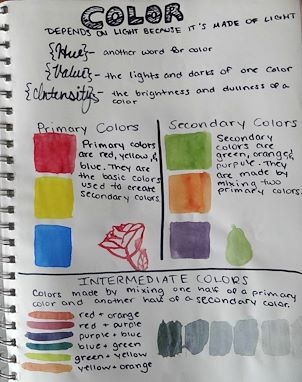 COLOR
DEPENDS ON LIGHT BECAUSE IT'S MADE OF LIGHT
{Hue} - another word for color
{Value} - the lights and darks of one color
{Intensity} - the brightness and dullness of a
color
Primary Colors
Primary colors
are red, yellow, &
blue. They are
the basic colors
used to create
secondary colors.
Secondary Colors
Secondary
colors are
green, orange, &
purple. They
are made by
mixing two
primary colors.
INTERMEDIATE COLORS
Colors made by mixing one half of a primary
color and another half of a secondary color.
red + orange
red + purple
purple + blue
blue + green
green + yellow
yellow + orange